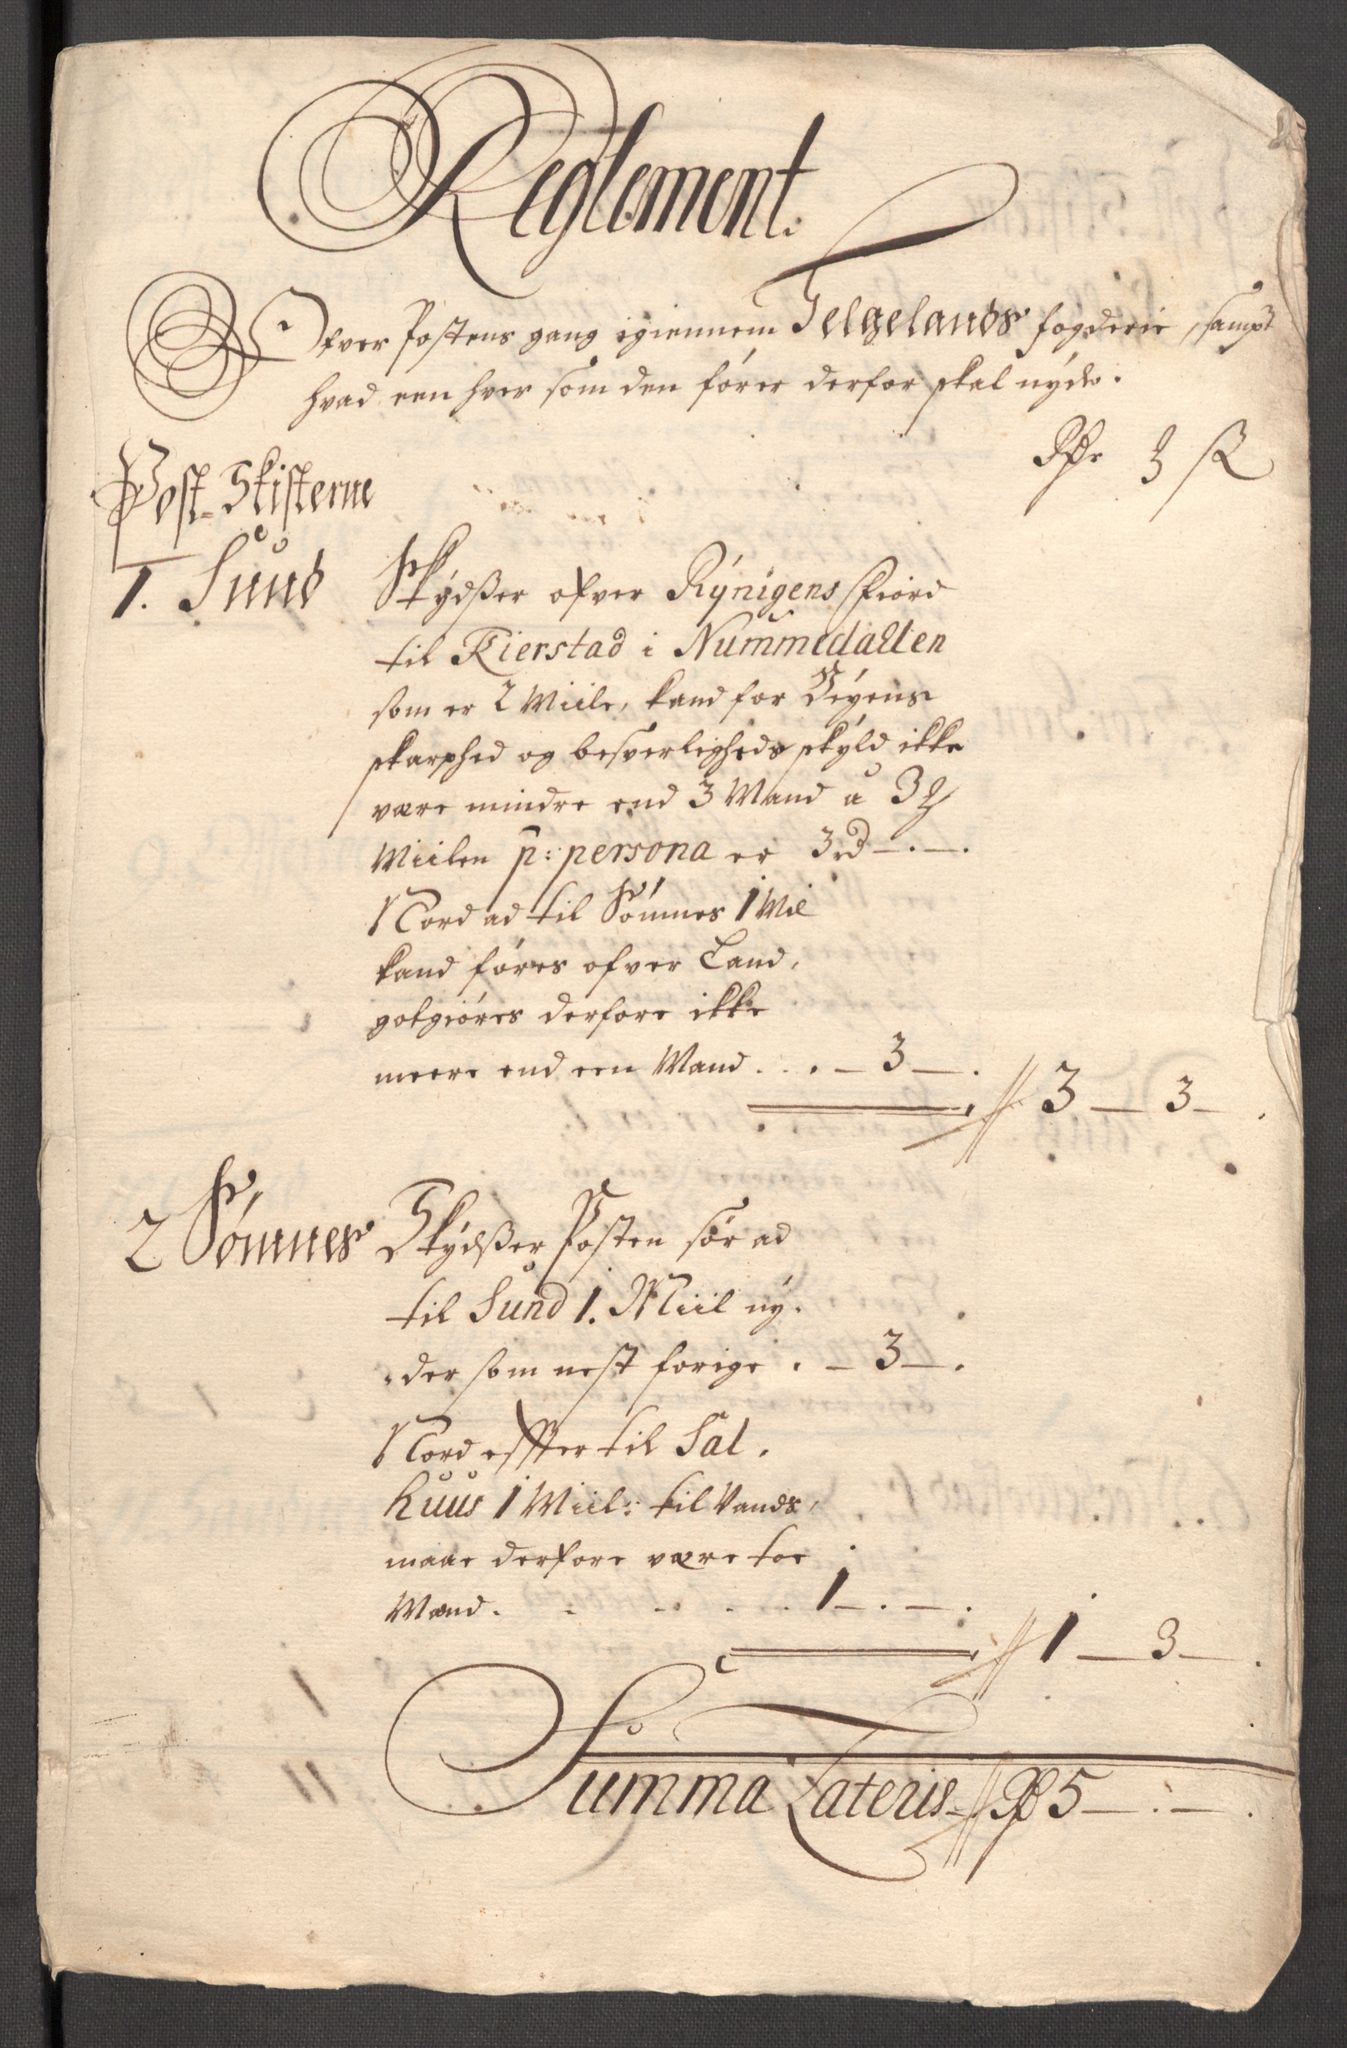 Reglement.
Ofver Postens gang igiennem Helgelands fogderie, sampt
hvad een hver som den fører derfor skal nyde.
Rdr ß
Post-Skifterne
1. Sund
Skydßer ofver Rynigens fiord
til Fierstad i Nummedallen
som er 2 Miile, kand for Veyens
skarphed og besverligheds skyld ikke
være mindre end 3 Mand a 3
Miilen p: persona er 3 - . - .
Nord ad til Sømnes 1 Mil
kand føres ofver Land,
gotgiøres derfore ikke
meere end een Mand . . . - 3 - .
3 - 3 - .
2 Sømnes
Skydßer Posten sør ad
til Sund 1. Miil ny-
der som nest forige . - 3 - .
Nord effter til Sal-
huus 1 Miil: til Vands,
maae derfore være toe
Mænd. 1 - . - .
1 - 3 - .
Summa Lateris 5 - . - .